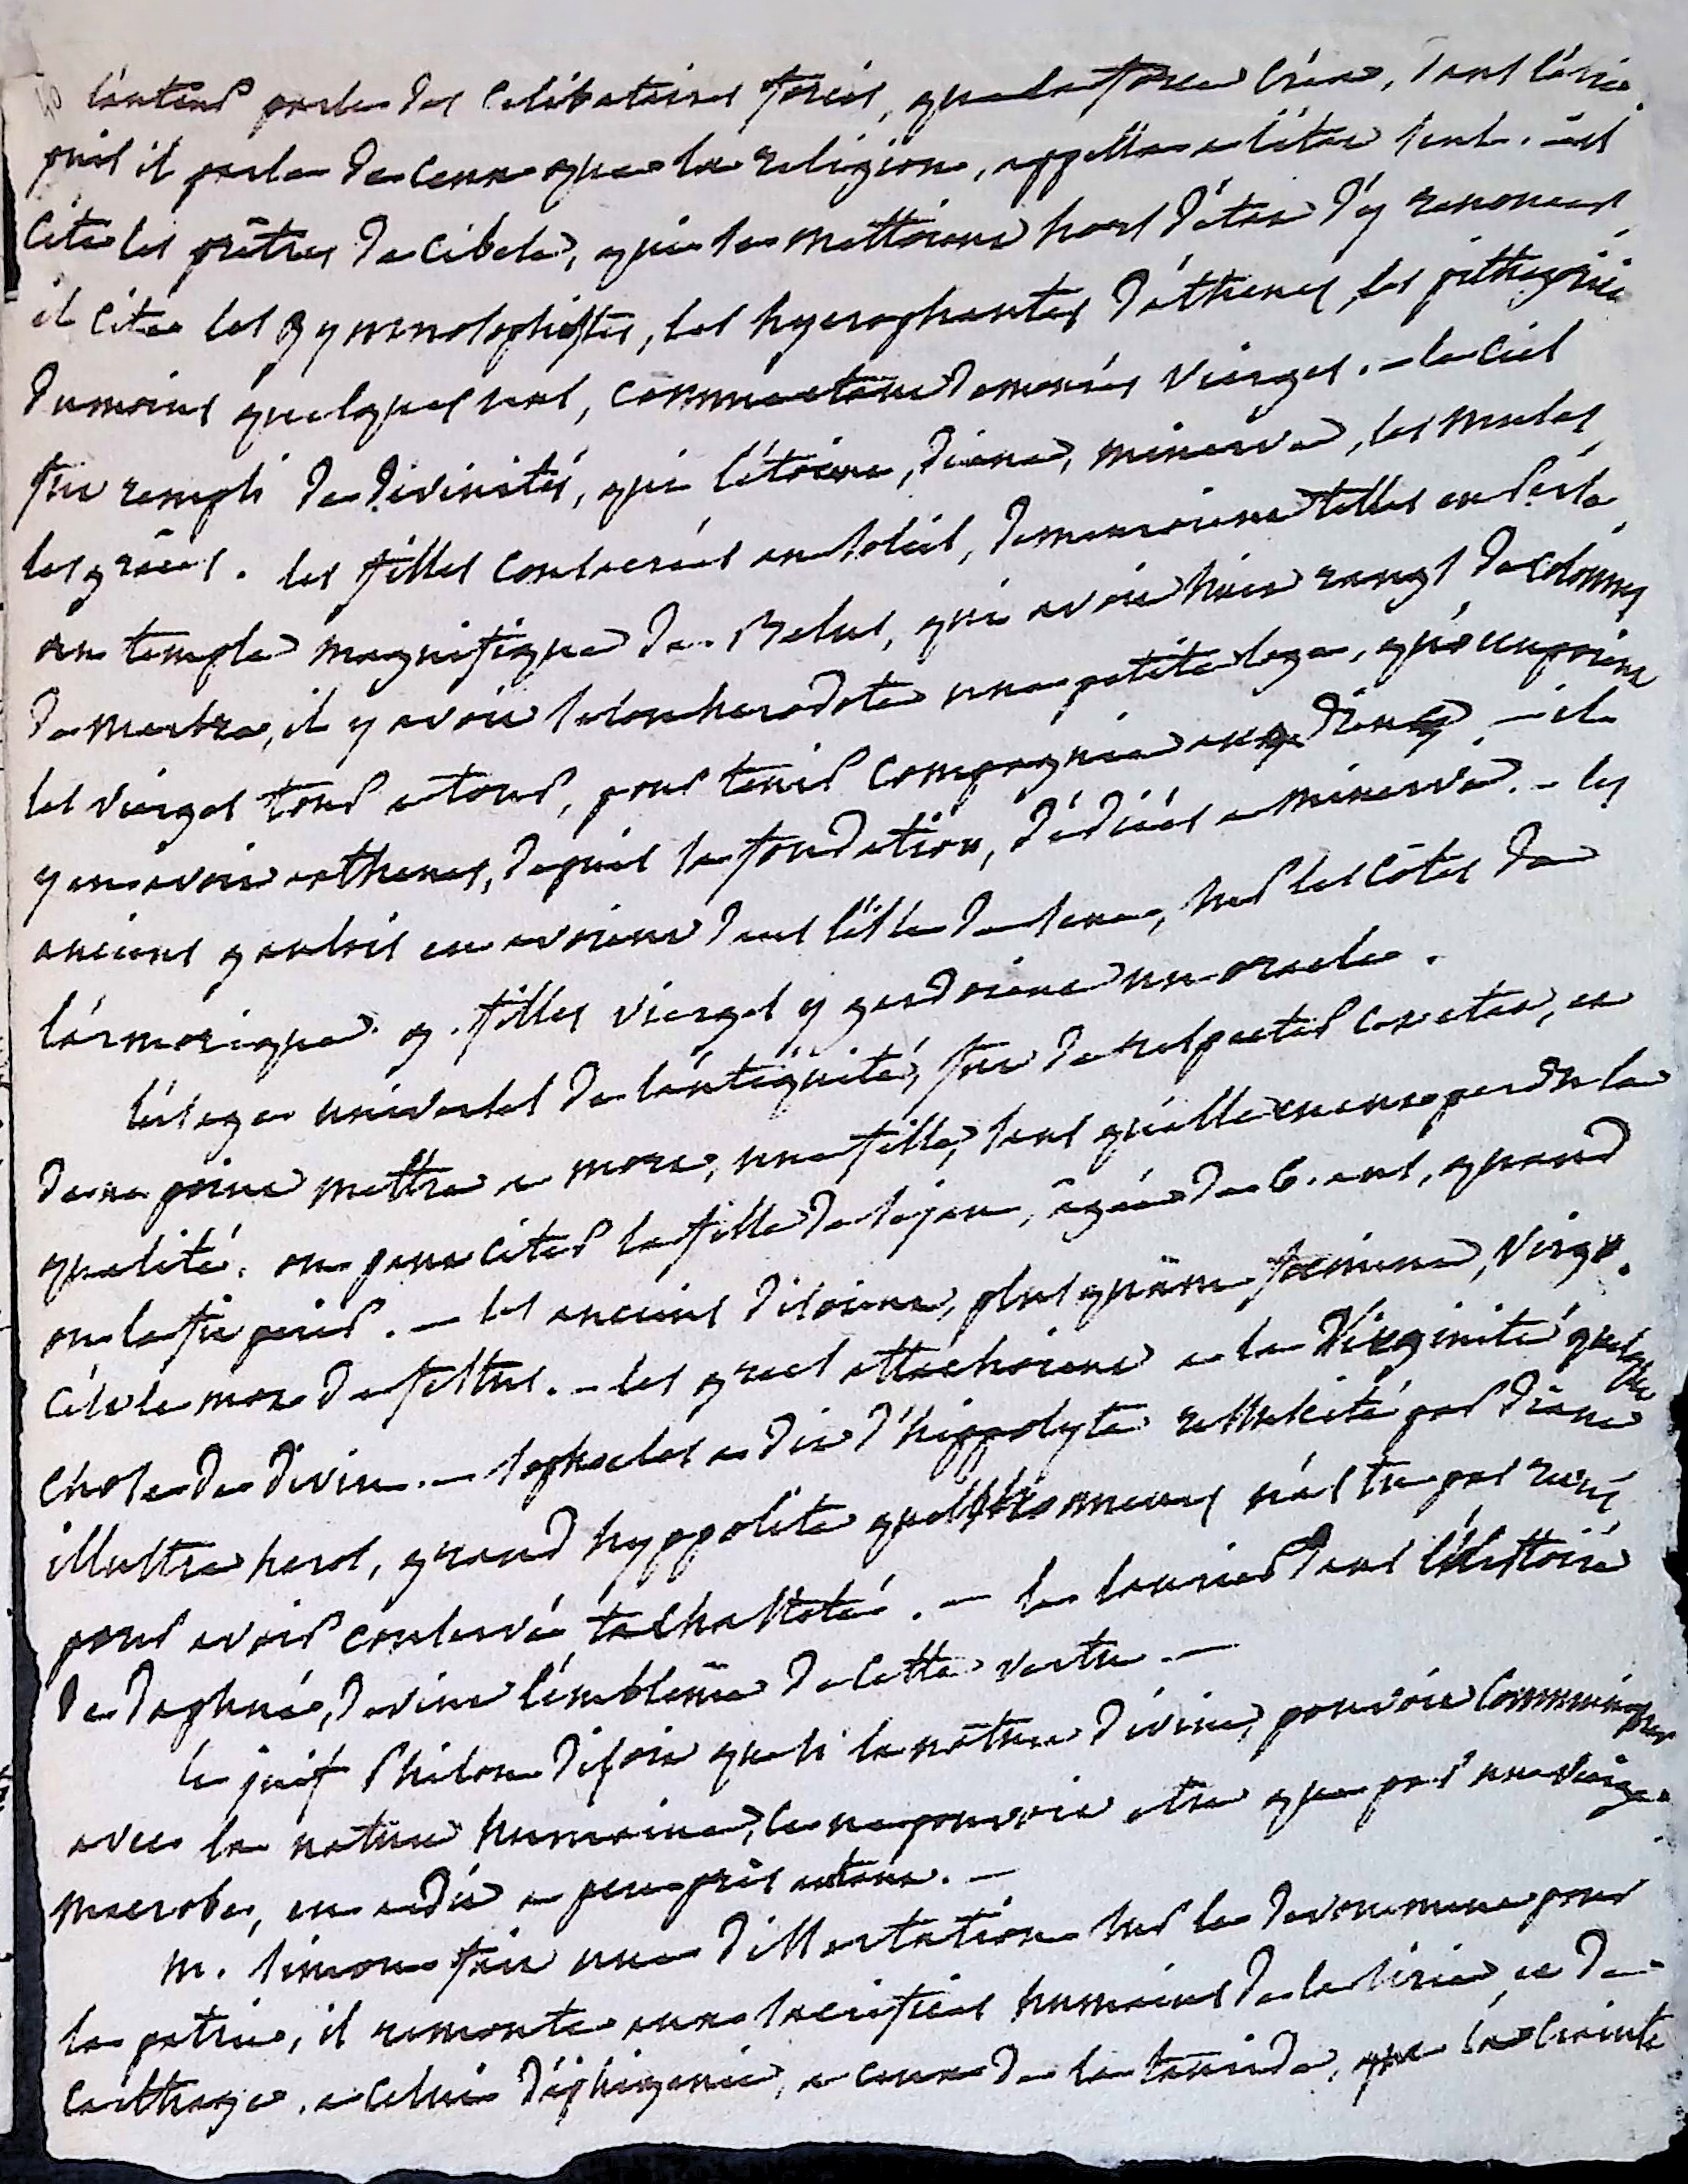 l'auteur parle des célibataires forcés, que la force créa, dans l'asie.
puis il parle de ceux que la religion, appella a l'état seul. — il
cite les prêtres de cibele, qui se mettoient hors d'état d'y renoncer
il cite les gymnosophistes, les hyerophantes d'athenes, les pithagorici
du moins quelques uns, comme etant demeurés vierges. — le ciel
fut rempli de divinités, qui l'étoient, diane, minerve, les muses,
les grâces. les filles consacrées au soleil, demeuroient telles en perse
au temple magnifique de Belus, qui avoit huit rangs de colonnes
de marbre, il y avoit selon herodote une petite loge, qu'occupoient
les vierges tour a tour, pour tenir compagnie aux dieux — il
y en avoit a athenes, depuis sa fondation, dédiées a minerve. — les
anciens gaulois en avoient dans l'isle de sene, sur les côtes de
l'armorique. 9. filles vierges y gardoient un oracle.
l'usage universel de l'antiquité, fut de respecter cet etat, et
de ne point mettre a mort, une fille, sans qu'elle eut perdu la
qualité. on peut citer la fille de sejan, âgée de 6. ans, quand
on la fit perir. — les anciens disoient, plus qu'une foemina, virgo.
c'est le mot de festus. — les grecs attachoient a la virginité quelque
chose de divin. — sophocles a dit d'hippolyte ressuscité par diane
illustre heros, grand hyppolite quels honneurs n'as tu pas reçus
pour avoir conservé ta chasteté. — le laurier dans l'histoire
de daphné, devint l'emblême de cette vertu. —
le juif Philon disoit que si la nature divine, pouvoit communiquer
avec la nature humaine, ce ne pouvoit etre que par une vierge.
macrobe, en a dit a peu près autant. —
m. simon fait une dissertation sur le devouement pour
la patrie, il remonte aux sacrifices humains de la sirie, et de
carthage. a celui d'iphigenie, a ceux de la tauride, que la crainte